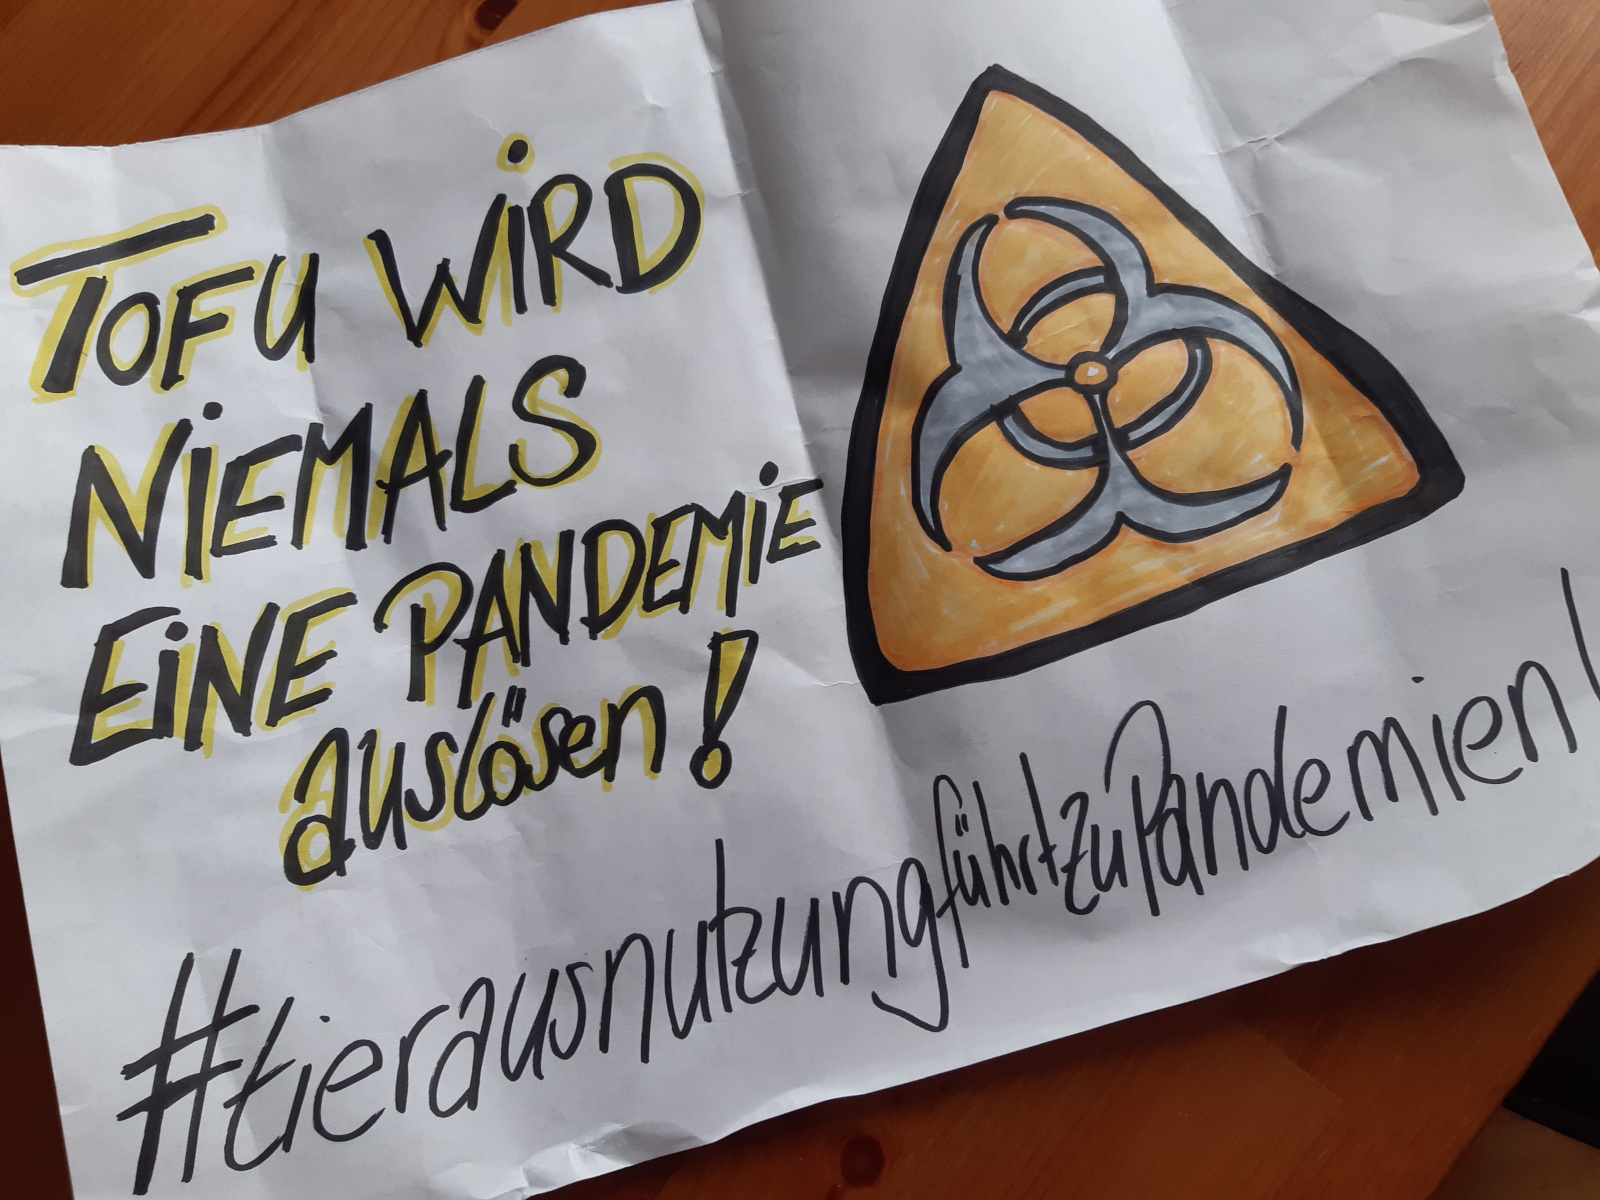 TOFU WiRD
NiEMALS
EiNE PANDEMiE
auslösen!
#tierausnutzungführtzuPandemien!